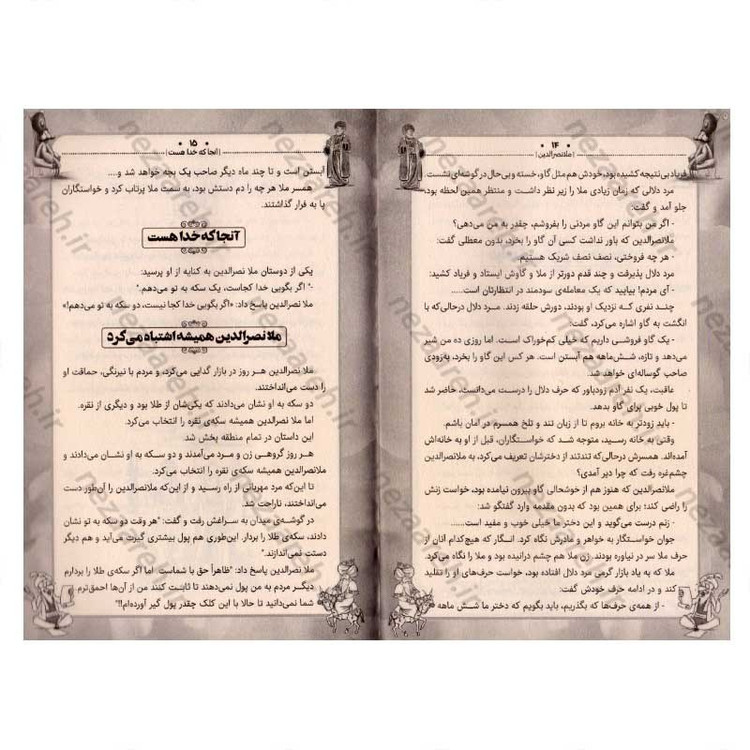 • ۱۴ •
| ملانصرالدین |
فریاد بی‌نتیجه کشیده بود، خودش هم مثل گاو، خسته و بی‌حال در گوشه‌ای نشست.
مرد دلالی که زمان زیادی ملا را زیر نظر داشت و منتظر همین لحظه بود،
جلو آمد و گفت:
- اگر من بتوانم این گاو مردنی را بفروشم، چقدر به من می‌دهی؟
ملانصرالدین که باور نداشت کسی آن گاو را بخرد، بدون معطلی گفت:
- هر چه فروختی، نصف نصف شریک هستیم.
مرد دلال پذیرفت و چند قدم دورتر از ملا و گاوش ایستاد و فریاد کشید:
- آی مردم! بیایید که یک معامله‌ی سودمند در انتظارتان است....
چند نفری که نزدیک او بودند، دورش حلقه زدند. مرد دلال درحالی‌که با
انگشت به گاو اشاره می‌کرد، گفت:
- یک گاو فروشی داریم که خیلی کم‌خوراک است. اما روزی ده من شیر
می‌دهد و تازه، شش‌ماهه هم آبستن است. هر کس این گاو را بخرد، به‌زودی
صاحب گوساله‌ای خواهد شد.
عاقبت، یک نفر آدم زودباور که حرف دلال را درست می‌دانست، حاضر شد
تا پول خوبی برای گاو بدهد.
- باید زودتر به خانه بروم تا از زبان تند و تلخ همسرم در امان باشم.
وقتی به خانه رسید، متوجه شد که خواستگاران، قبل از او به خانه‌اش
آمده‌اند. همسرش درحالی‌که تندتند از دخترشان تعریف می‌کرد، به ملانصرالدین
چشم‌غره رفت که چرا دیر آمدی؟
ملانصرالدین که هنوز هم از خوشحالی گاو بیرون نیامده بود، خواست زنش
را راضی کند؛ برای همین بود که بدون مقدمه وارد گفتگو شد:
- زنم درست می‌گوید و این دختر ما خیلی خوب و مفید است.....
جوان خواستگار به خواهر و مادرش نگاه کرد. انگار که هیچ‌کدام آنان از
حرف ملا سر در نیاورده بودند. زن ملا هم چشم درانیده بود و ملا را نگاه می‌کرد.
ملا که به یاد بازار گرمی مرد دلال افتاده بود، خواست حرف‌های او را تقلید
کند و در ادامه حرف خودش گفت:
- از همه‌ی حرف‌ها که بگذریم، باید بگویم که دختر ما شش ماهه
• ۱۵ •
| آنجا که خدا هست |
آبستن است و تا چند ماه دیگر صاحب یک بچه خواهد شد و....
همسر ملا هر چه را دم دستش بود، به سمت ملا پرتاب کرد و خواستگاران
پا به فرار گذاشتند.
آنجا که خدا هست
یکی از دوستان ملا نصرالدین به کنایه از او پرسید:
-" اگر بگویی خدا کجاست، یک سکه به تو می‌دهم."
ملا نصرالدین پاسخ داد: «اگر بگویی خدا کجا نیست، دو سکه به تو می‌دهم!»
ملا نصرالدین همیشه اشتباه می‌کرد
ملا نصرالدین هر روز در بازار گدایی می‌کرد، و مردم با نیرنگی، حماقت او
را دست می‌انداختند.
دو سکه به او نشان می‌دادند که یکی‌شان از طلا بود و دیگری از نقره.
اما ملا نصرالدین همیشه سکه‌ی نقره را انتخاب می‌کرد.
این داستان در تمام منطقه پخش شد.
هر روز گروهی زن و مرد می‌آمدند و دو سکه به او نشان می‌دادند و
ملانصرالدین همیشه سکه‌ی نقره را انتخاب می‌کرد.
تا این‌که مرد مهربانی از راه رسید و از این‌که ملانصرالدین را آن‌طور دست
می‌انداختند، ناراحت شد.
در گوشه‌ی میدان به سراغش رفت و گفت: "هر وقت دو سکه به تو نشان
دادند، سکه‌ی طلا را بردار. این‌طوری هم پول بیشتری گیرت می‌آید و هم دیگر
دستت نمی‌اندازند."
ملا نصرالدین پاسخ داد: "ظاهراً حق با شماست. اما اگر سکه‌ی طلا را بردارم
دیگر مردم به من پول نمی‌دهند تا ثابت کنند من از آن‌ها احمق‌ترم.
شما نمی‌دانید تا حالا با این کلک چقدر پول گیر آورده‌ام!!"
nezaareh.ir